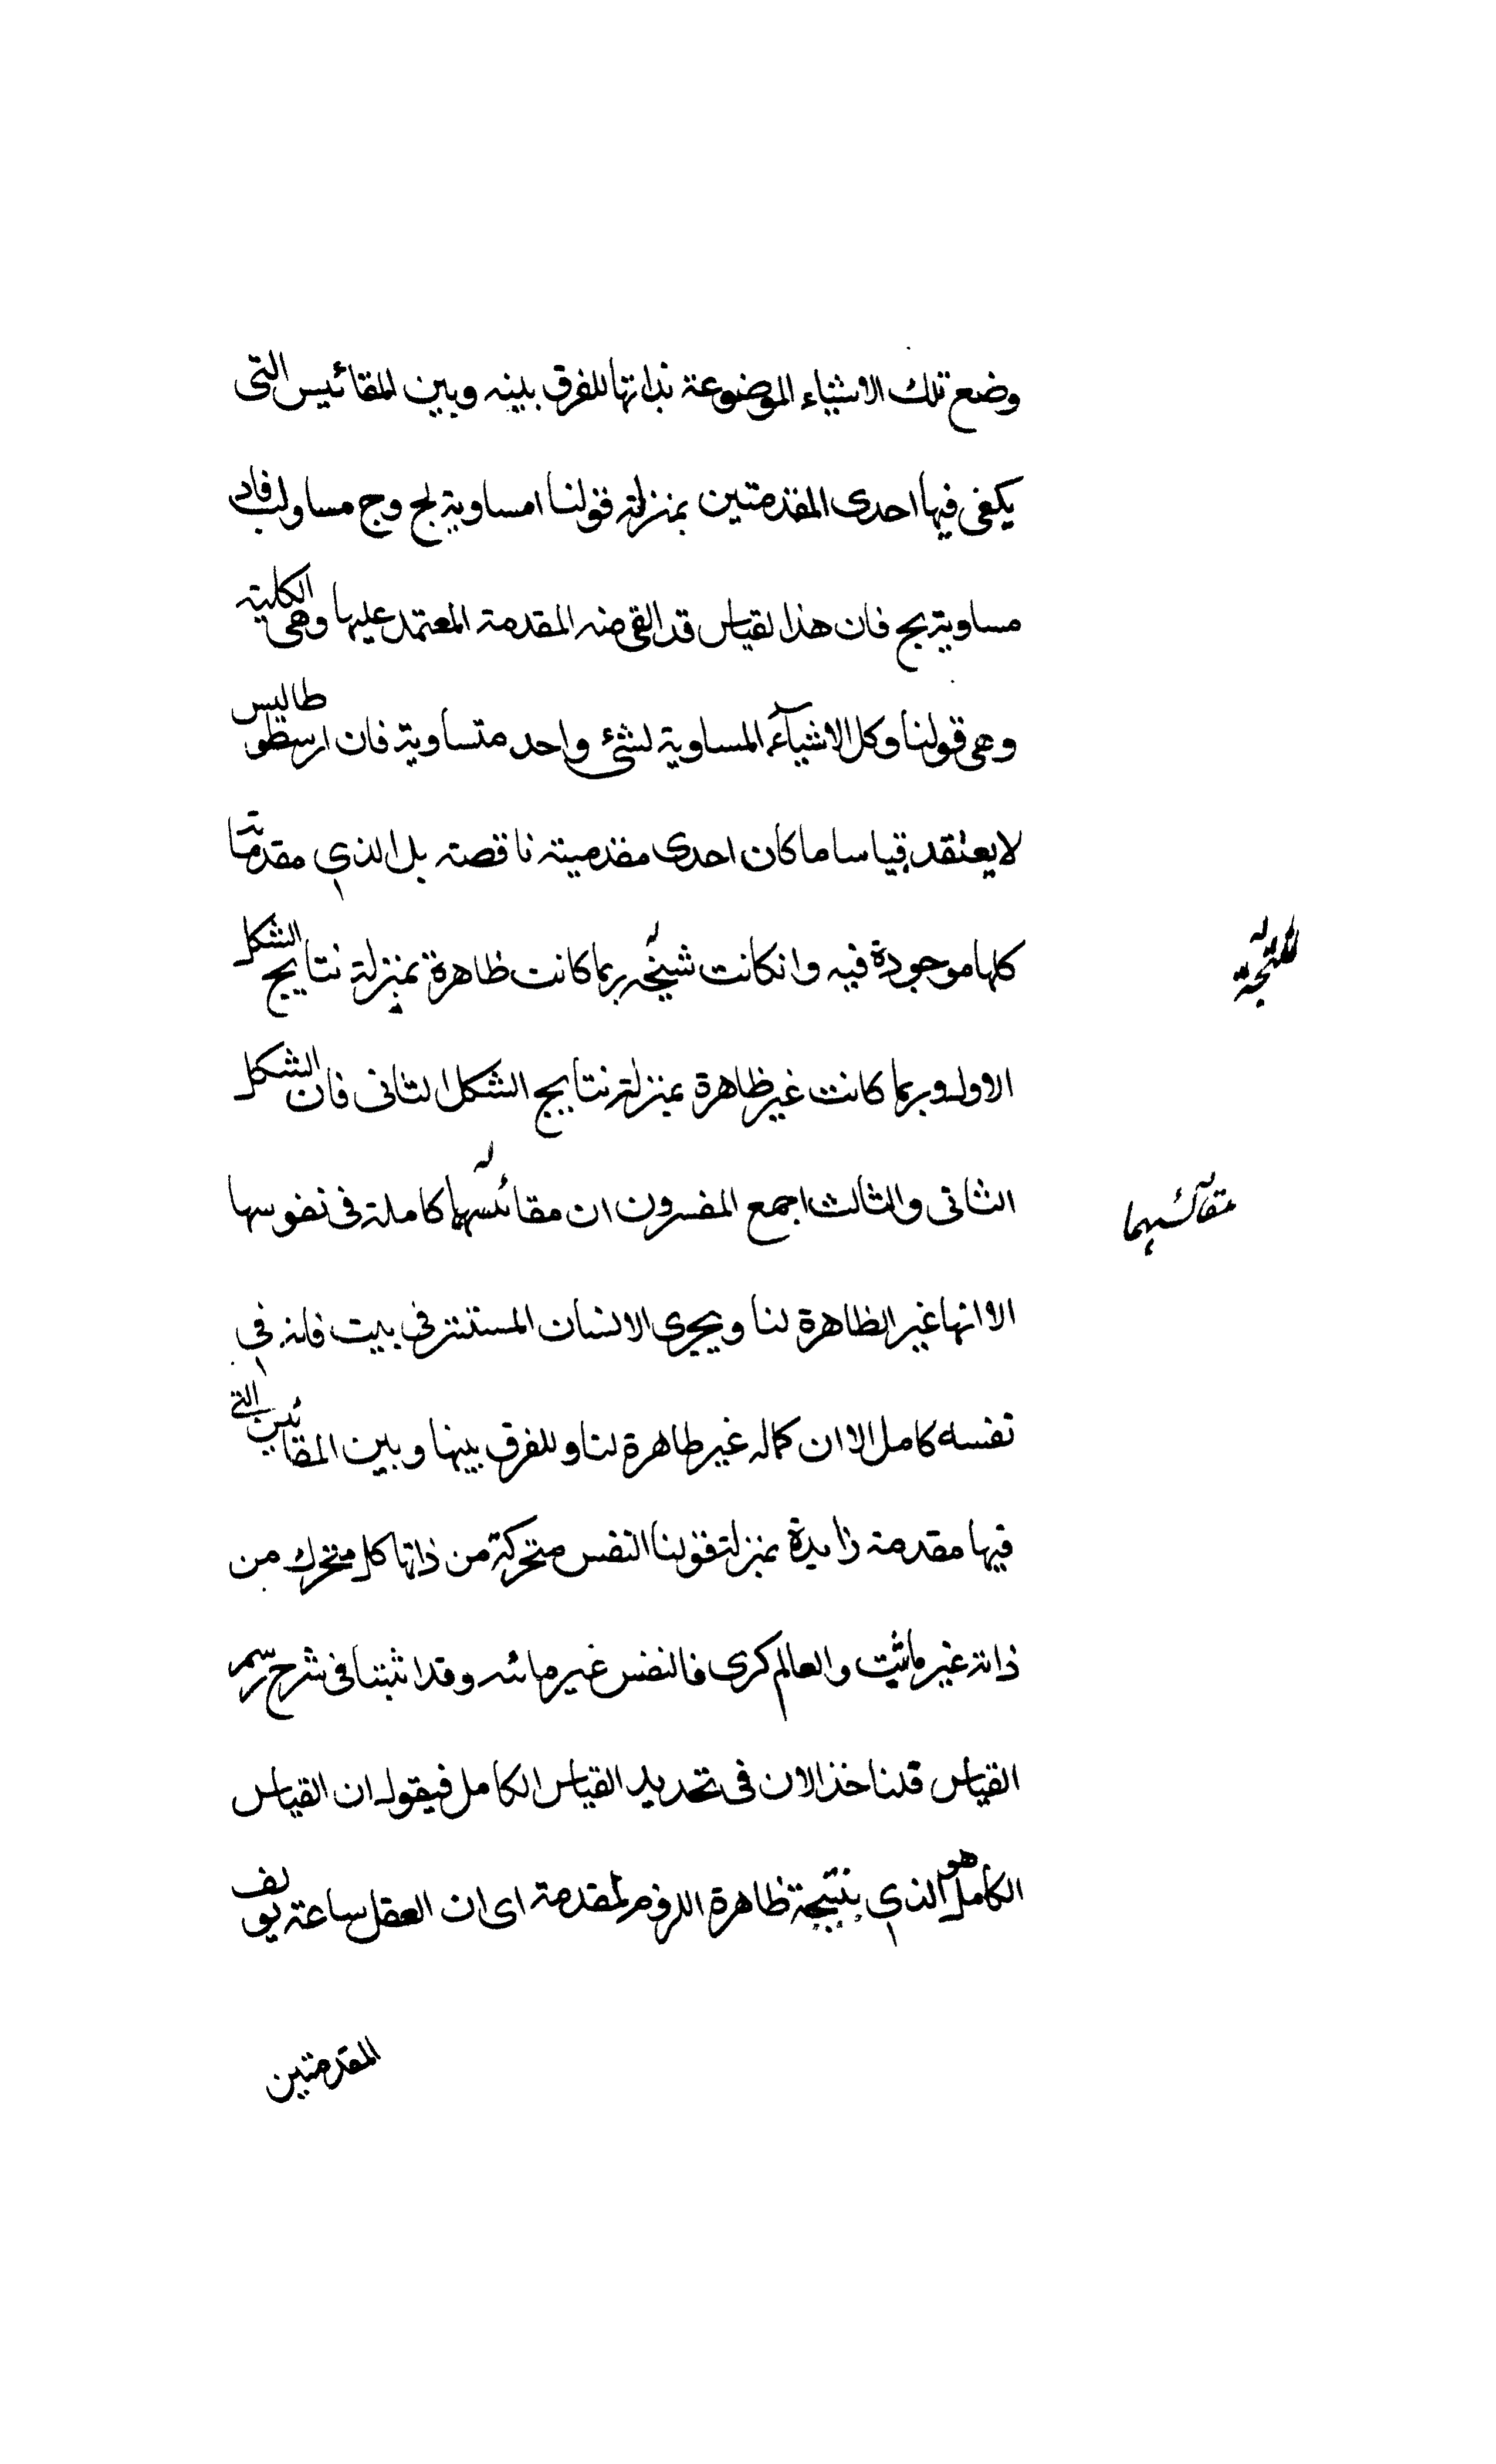 وضع تلك الاشياء الموضوعة بذاتها للفرق بينه وبين المقائيس التى
يكفى فيها احدى المقدمتين بمنزلة قولنا امساوية لج وج مساو لب فاذ
مساوية بج فان هذا لقياس قد القى منه المقدمة المعتمد عليها وهى الكلية
وهى قولنا وكل الاشيآء المساوية لشئ واحد متساوية فان ارسطوطاليس
لا يعتقد قياسا ما كان احدى مقدميته ناقصة بل الذى مقدمتا
كلها موجودة فيه وانكانت شيخه ربما كانت ظاهرة بمنزلة نتايج الشكل
نتيجة
الاول وربما كانت غير ظاهرة بمنزلة نتايج الشكل الثانى فان الشكل
الثانى والثالث اجمع المفسرون ان مقائسهما كاملة فى نفوسها
مقائسهما
الا انها غير الظاهرة لنا ويجرى الانسان المستتر فى بيت فانه فى
نفسه كامل الا ان كماله غير ظاهرة لنا وللفرق بينها وبين المقائيس التى
فيها مقدمة زايدة بمنزلة قولنا النفس متحركة من ذاتها كل متحرك من
ذاته غير مائت والعالم كرى فالنفس غير مائته وقد اثبتنا فى شرح رسم
القياس قلنا خذ الان فى تحديد القياس الكامل فيقول ان القياس
الكامل هو الذى نتيجة ظاهرة اللزوم لمقدمة اى ان العقل ساعة يولف
المقدمتين